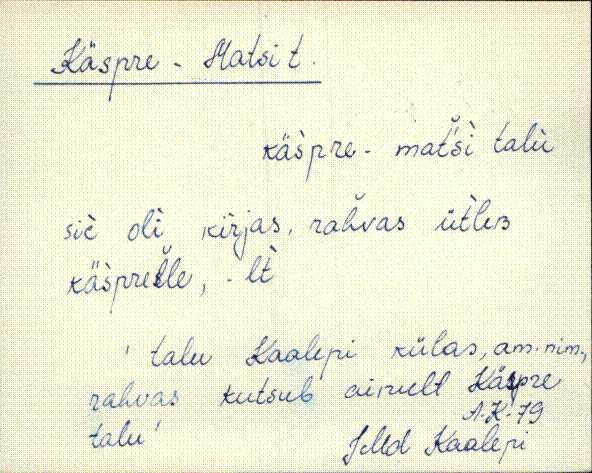 Käspre - Matsi t.
käs̀pre - mat̀'s̆ì talù
siè olì kìrjas, rah̆vas üt̀leʙ
käs̀prel̆le, - lt̀
' talu Kaalepi külas, am. nim.,
rahvas kutsub ainult Käspre
A.K-79
talu'
Kaalepi